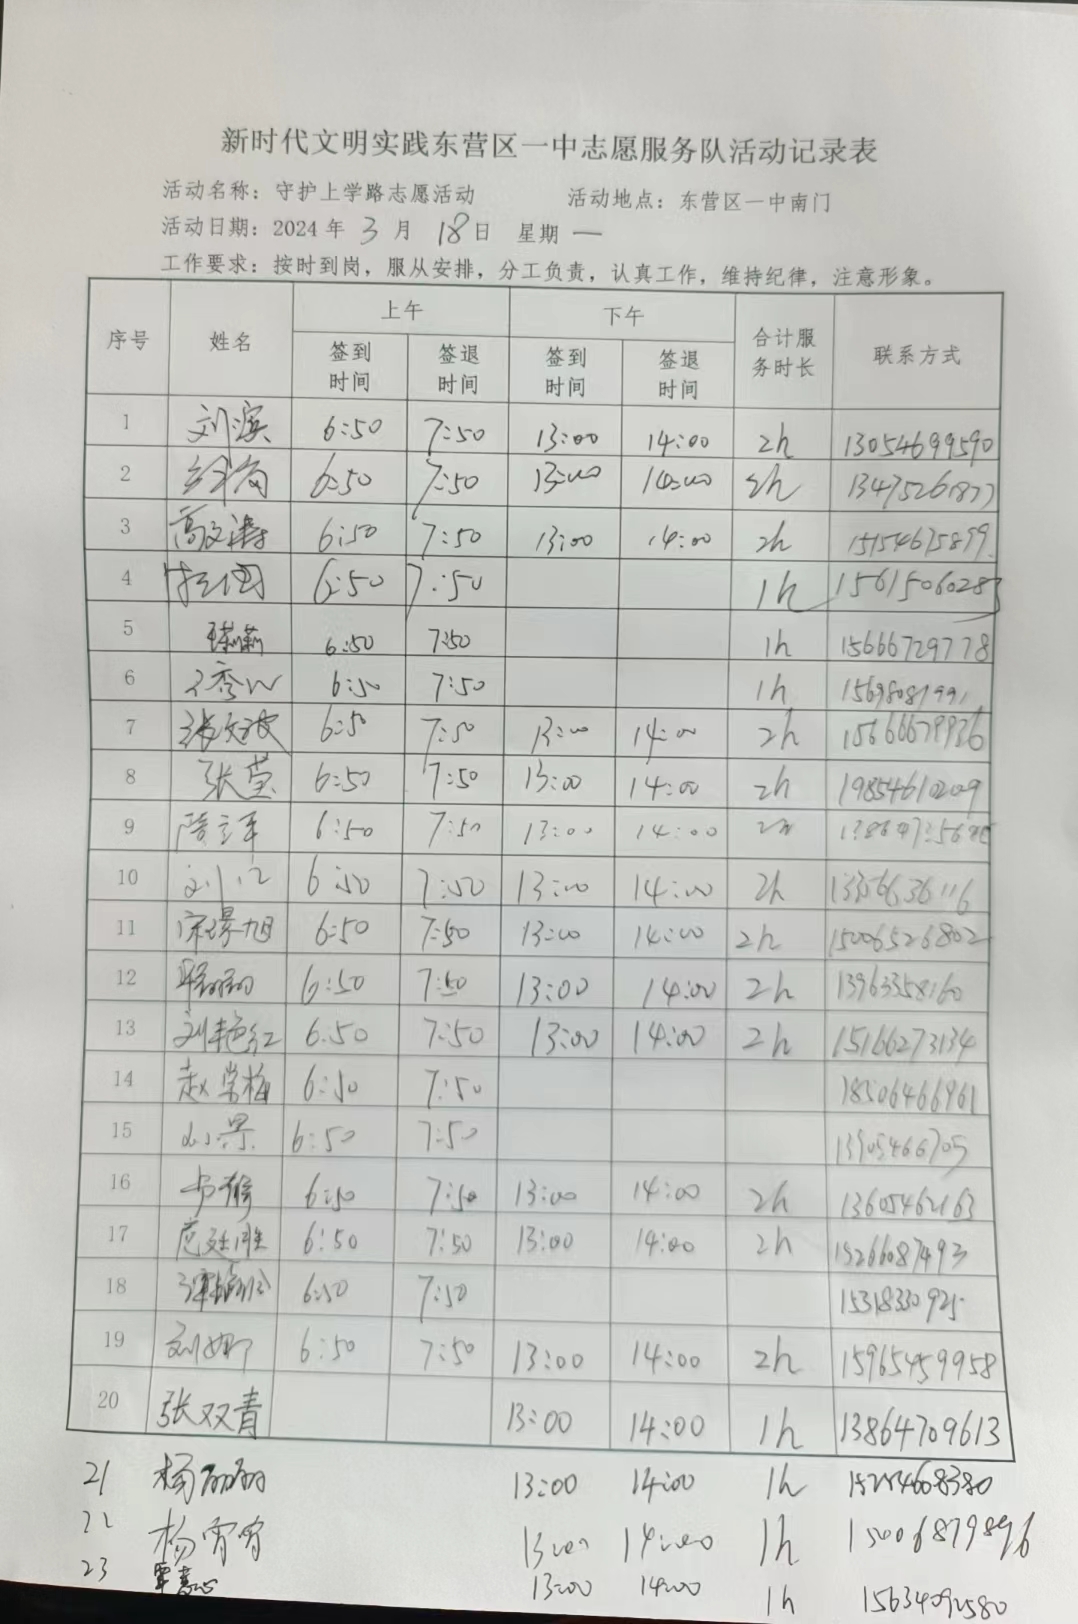 新时代文明实践东营区一中志愿服务队活动记录表
活动名称：守护上学路志愿活动 活动地点：东营区一中南门
活动日期：2024年 3 月 18 日 星期 一
工作要求：按时到岗，服从安排，分工负责，认真工作，维持纪律，注意形象。
序号 姓名 上午 下午 合计服务时长 联系方式
签到时间 签退时间 签到时间 签退时间
1 刘滨 6:50 7:50 13:00 14:00 2h 13054699590
2 6:50 7:50 13:00 14:00 2h 13475261877
3 高文涛 6:50 7:50 13:00 14:00 2h 15154675899
4 6:50 7:50 1h 15615060283
5 6:50 7:50 1h 15666729778
6 6:50 7:50 1h
7 6:50 7:50 13:00 14:00 2h
8 张莹 6:50 7:50 13:00 14:00 2h 19854610209
9 隋立军 6:50 7:50 13:00 14:00 2h
10 6:50 7:50 13:00 14:00 2h 13356636116
11 宋景旭 6:50 7:50 13:00 14:00 2h 15006526802
12 6:50 7:50 13:00 14:00 2h 13963358160
13 刘艳红 6:50 7:50 13:00 14:00 2h 15166273134
14 赵常梅 6:50 7:50 18506466961
15 6:50 7:50
16 6:50 7:50 13:00 14:00 2h 13605462163
17 范廷胜 6:50 7:50 13:00 14:00 2h 15266087493
18 6:50 7:50
19 刘娜 6:50 7:50 13:00 14:00 2h 15965459958
20 张双青 13:00 14:00 1h 13864709613
21 杨丽丽 13:00 14:00 1h 15254608380
22 杨宵宵 13:00 14:00 1h 15006879896
23 覃慧心 13:00 14:00 1h 15634092580